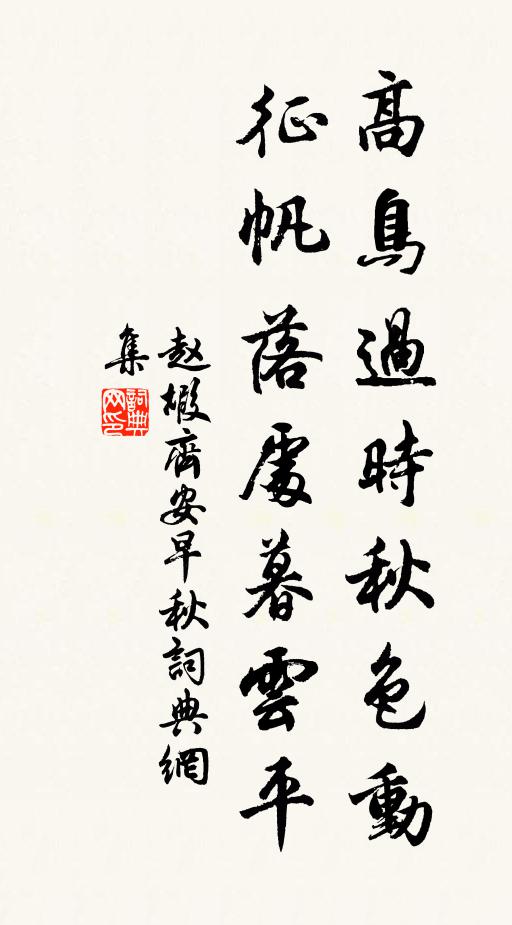 高鳥過時秋色動
征帆落處暮雲平
赵嘏齊安早秋詞典網
集
詞典
网印